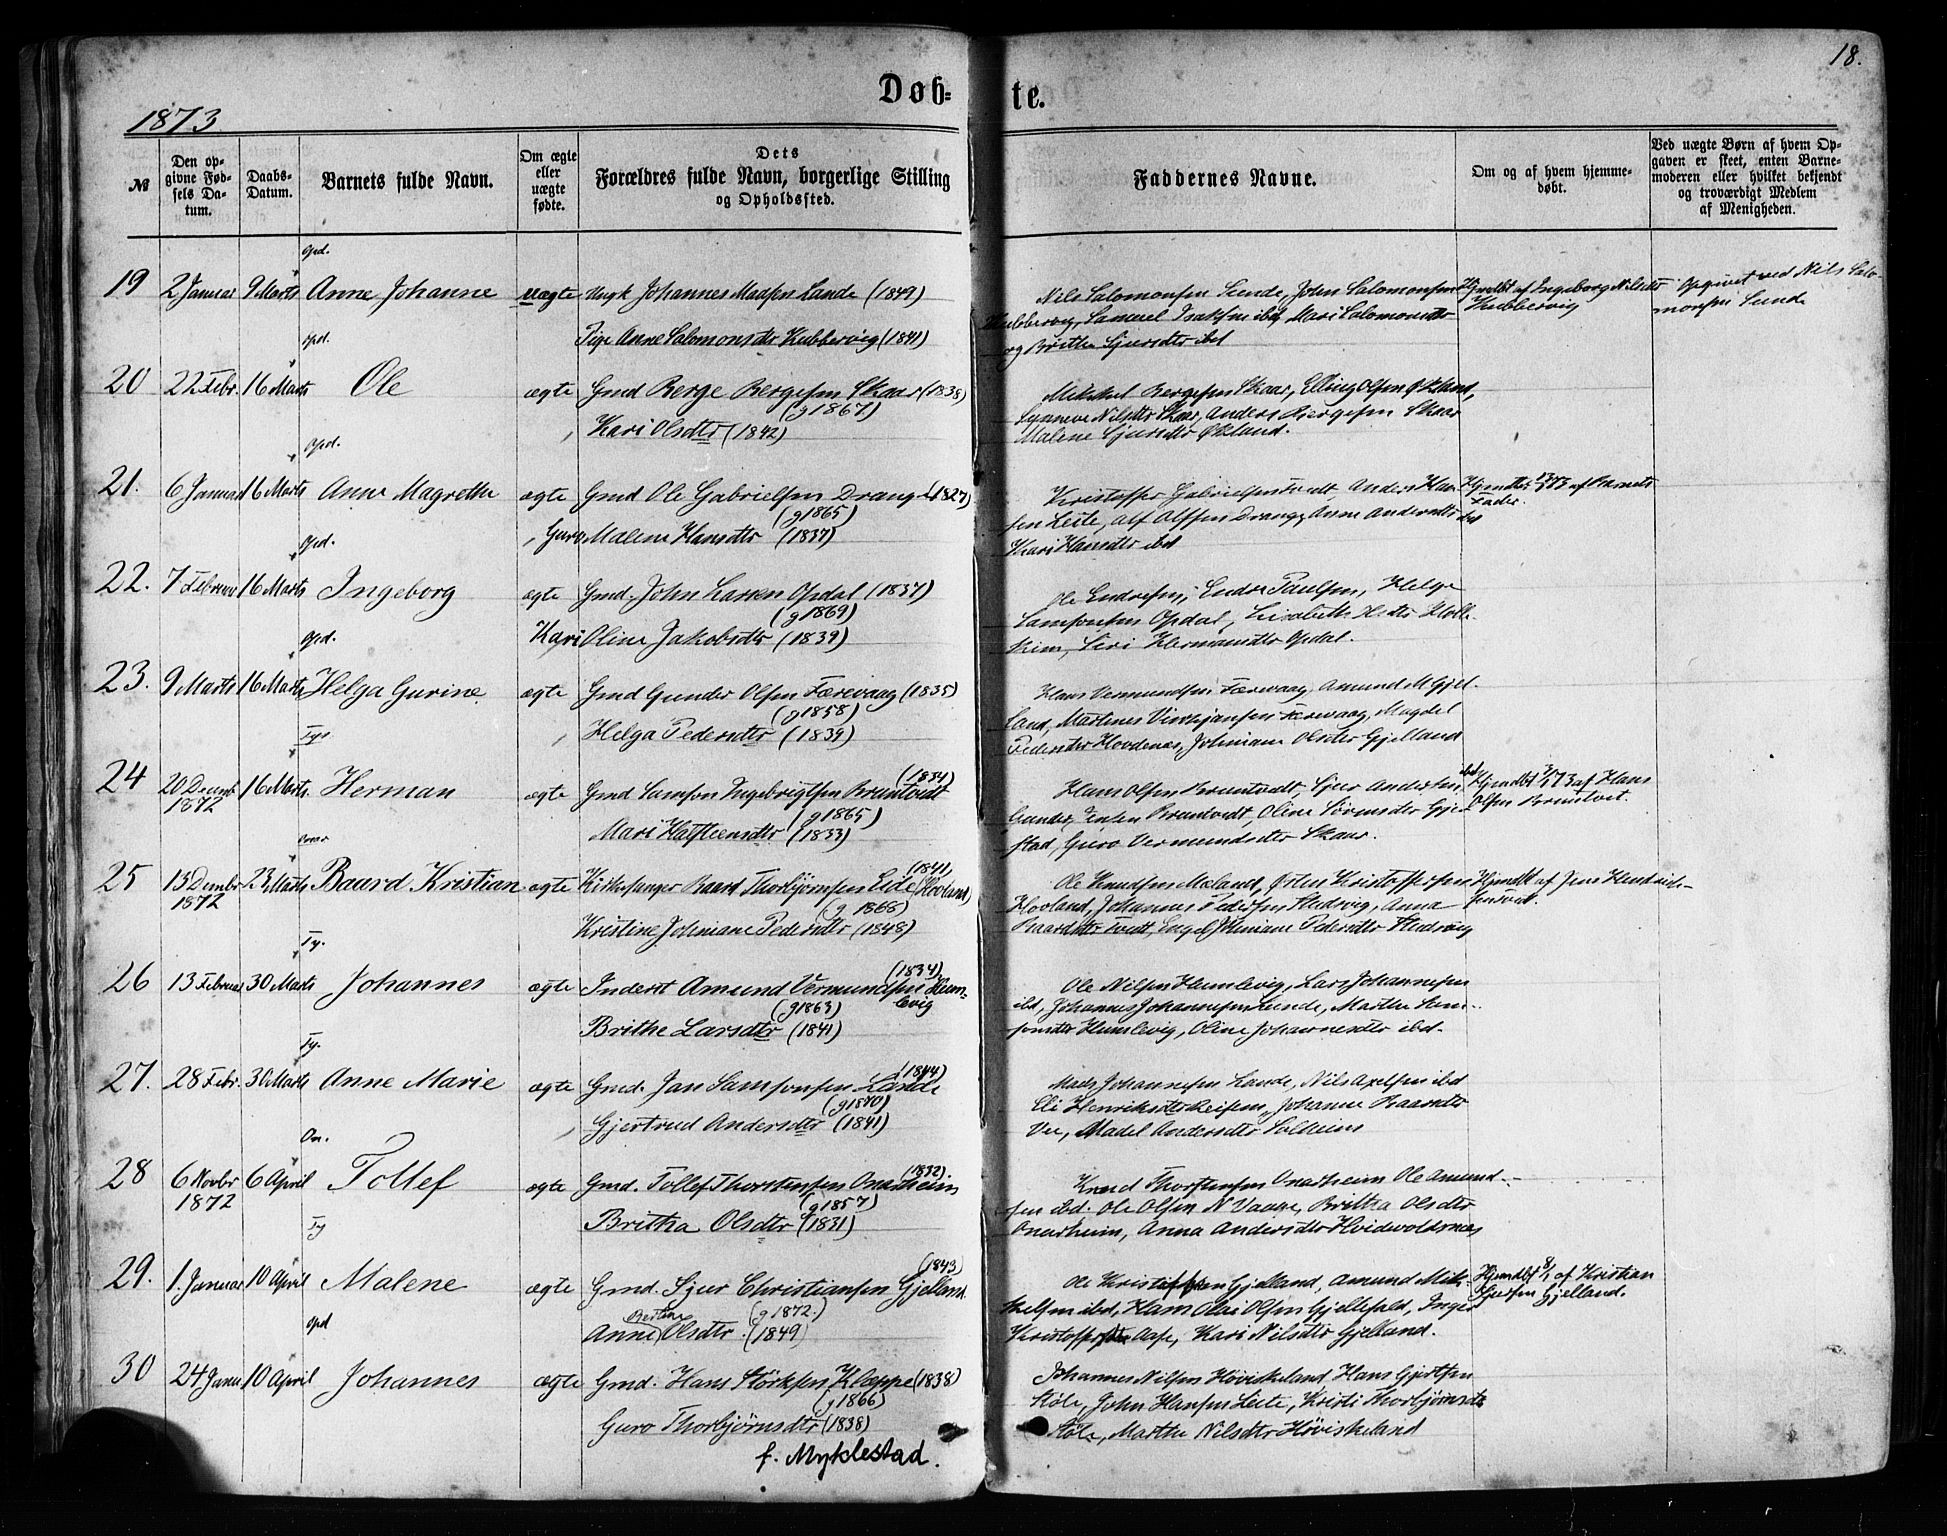 18.
Døb=te.
1873
№
Den op-
givne Fød-
sels Da-
tum.
Daabs-
Datum.
Barnets fulde Navn.
Om ægte
eller
uægte
fødte.
Dets
Forældres fulde Navn, borgerlige Stilling
og Opholdssted.
Faddernes Navne.
Om og af hvem hjemme-
døbt.
Ved uægte Børn af hvem Op-
gaven er skeet, enten Barne-
moderen eller hvilket bekjendt
og troværdigt Medlem
af Menigheden.
Opd.
19 2 Januar 9 Marts Anne Johanne uægte Ungk Johannes Madsen Lande (1849)
Pige Anne Salomonsdtr Kubbervig (1841)
Nils Salomonsen Sunde, John Salomonsen
Kubbervig, Samuel Isaksen ibd, Mari Salomonsdtr
og Brithe Sjursdtr ibd
Hjmdbt af Ingeborg Nilsdtr
Kubbervig
Opgivet ved Nils Salo-
monsen Sunde
Opd.
20 22 Febr. 16 Marts Ole ægte Gmd Berge Bergesen Skaar (1838)
(g 1867)
Kari Olsdtr (1842)
Mikkel Bergesen Skaar, Elling Olsen Økland,
Synneve Nilsdtr Skaar, Anders Bergesen Skaar
Malene Sjursdtr Økland.
Opd.
21. 6 Januar 16 Marts Anne Magrethe ægte Gmd Ole Gabrielsen Drange (1827)
(g 1865)
Guro Malene Hansdtr (1837)
Kristoffer Gabrielsen Tvedt, Anders Han-
sen Leite, Alf Olsen Drange, Anne Andersdtr ibd
Kari Hansdtr ibd
af Barnets
Fader.
Opd.
22. 7 Februar 16 Marts Ingeborg ægte Gmd. John Larsen Opdal (1837)
(g 1869)
Kari Oline Jakobsdtr (1839)
Ole Endresen, Endre Paulsen, Helge
Samsonsen Opdal, Lisabeth
Siri Hermansdtr Opdal.
Opd.
23. 9 Marts 16 Marts Helga Gurine ægte Gmd Gunder Olsen Færevaag (1835)
(g 1858)
Helga Pedersdtr (1839)
Hans Vermundsen Færevaag, Amund M Gjel-
land, Martines Færevaag, Magdel
Pedersdtr Hovdenes, Johniane Olsdtr Gjelland
Tys
24 20 Decmb 1872 16 Marts. Herman ægte Gmd Samson Ingebrigtsen Bruntvedt (1834)
(g 1865)
Mari Halsteensdtr (1833)
Hans Olsen Bruntvedt, Sjur Andersen, ibd
Gunder Jensen Bruntvedt, Oline Sørensdtr Gjer-
stad, Guro Vermundsdtr Skaar.
Hjmdbt 3/1 73 af Hans
Olsen Bruntvet.
Onar
25 13 Dembr 1872 23 Marts Baard Kristian ægte Kirkesanger Baard Thorbjørnsen Eide (Hovland) (1841)
(g 1868)
Kristine Johniane Pedersdtr (1848)
Ole Knudsen Meland, Østen Kristoffersen
Hovland, Johannes Pedersen Husevig, Anna
Baardsdtr Tvedt, Engel Johniane Pedersdtr Husevig
Hjmdbt af Jens Henrik-
Ty.
26 13 Februar 30 Marts Johannes ægte Inderst Amund Vermundsen Hum- (1834)
levig
(g 1863)
Brithe Larsdtr (1841)
Ole Nilsen Humlevig, Lars Johannesen
ibd, Johannes Johannesen Sunde, Marthe Sam-
sonsdtr Humlevig, Oline Johannesdtr ibd.
Ty.
27. 28 Febr. 30 Marts Anne Marie ægte Gmd. Jan Samsonsen Lande (1844)
(g 1870)
Gjertrud Andersdtr (1841)
Mads Johannesen Lande, Nils Axelsen ibd
Eli Henriksdtr Johanne Baardsdtr
Vee, Madel Andersdtr Solheim
On.
28 6 Novbr 1872 6 April Tollef ægte Gmd. Tollef Thorstensen Onarheim (1832)
(g 1857)
Britha Olsdtr (1831)
Knud Thorstensen Onarheim Ole Amund-
sen ibd. Ole Olsen N Vaage, Britha Olsdtr
Onarheim, Anna Andersdtr Hvidevoldsnes
Ty
29. 1. Januar 10 April Malene ægte Gmd. Sjur Christiansen Gjelland. (1843)
Bertine (g 1872.)
Anne Olsdtr. (1849)
Ole Kristoffersen Gjelland, Amund Mik-
kelsen ibd, Hans Olai Olsen Gjellefeld, Inger
Kristoffersdtr Aase, Kari Nilsdtr Gjelland.
Hjemdbt 8/1 af Kristian
Sjursen Gjelland.
Opd
30 24 Janu. 10 April Johannes ægte Gmd. Hans Størksen Kleppe (1838)
(g 1866)
Guro Thorbjørnsdtr (1838)
f. Myklestad.
Johannes Nilsen Høviskeland Hans Gjertsen
Støle, John Hansen Leite, Kristi Thorbjørnsdtr
Støle, Marthe Nilsdtr Høviskeland